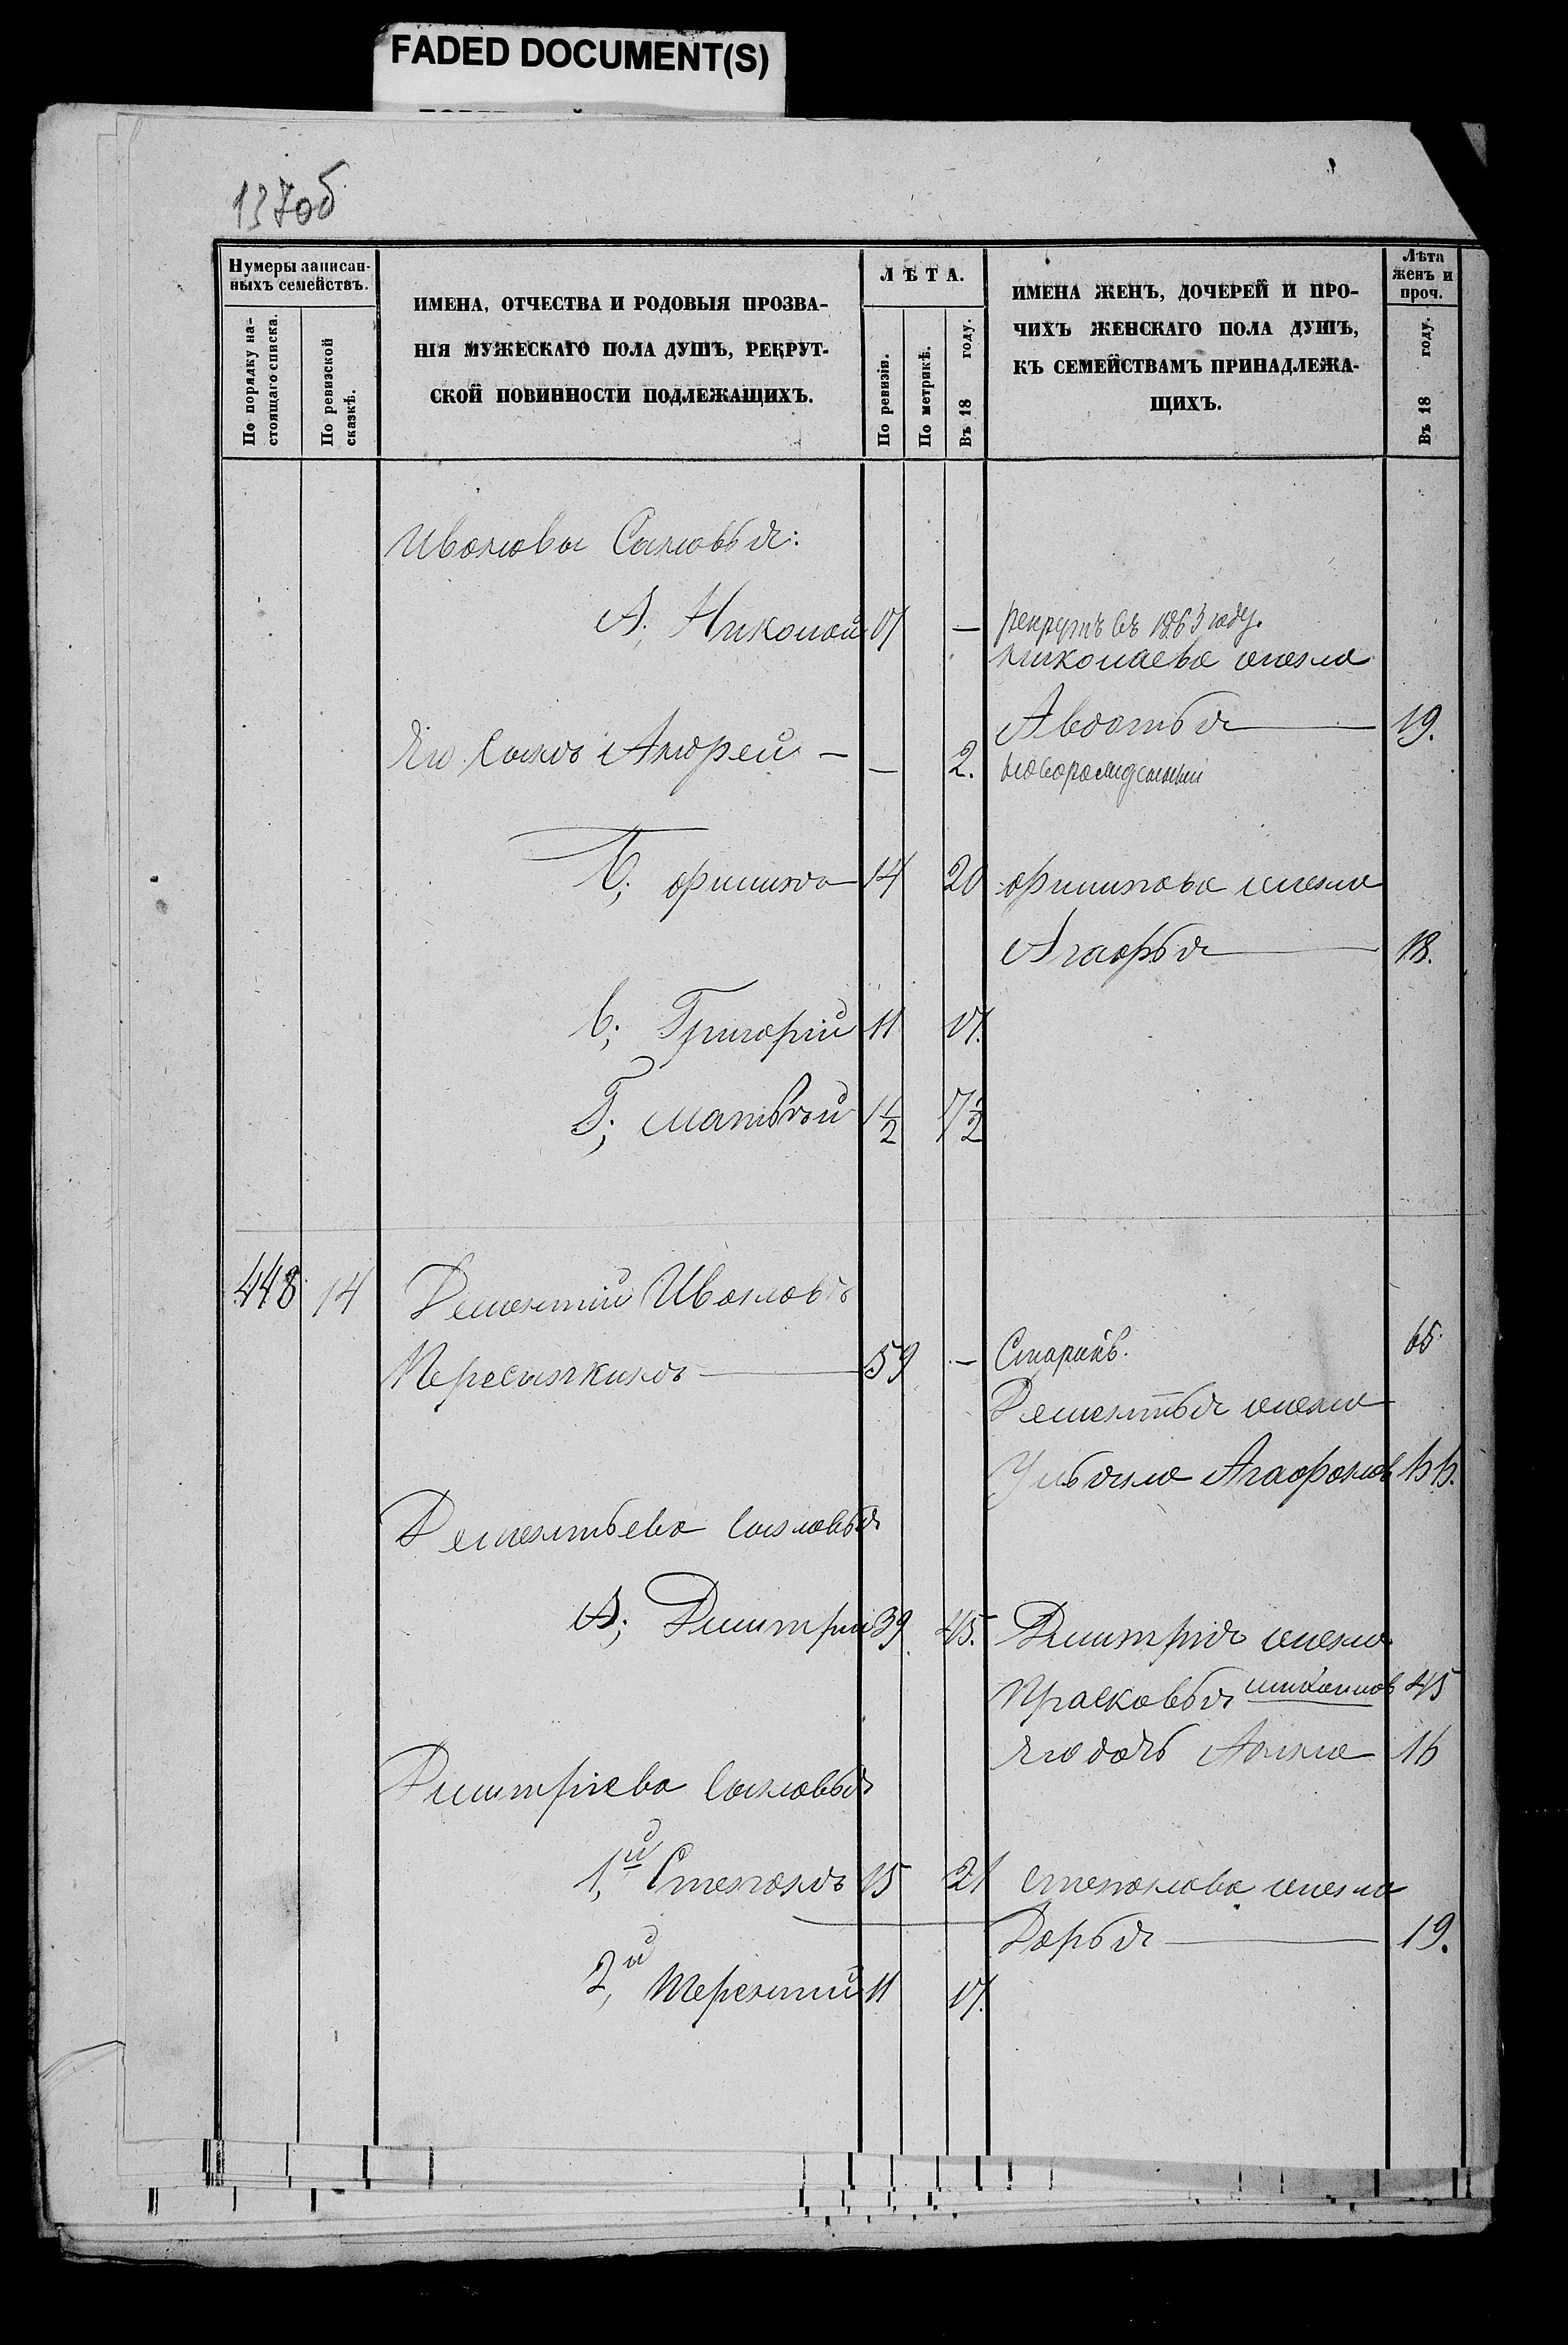 FADED DOCUMENT(S)
137об
Нумеры записан-
ныхъ семействъ.
По порядку на-
стоящаго списка.
По ревизской
сказкѣ.
ИМЕНА, ОТЧЕСТВА И РОДОВЫЯ ПРОЗВА-
НІЯ МУЖЕСКАГО ПОЛА ДУШЪ, РЕКРУТ-
СКОЙ ПОВИННОСТИ ПОДЛЕЖАЩИХЪ.
ЛѢТА.
По ревизіи.
По метрикѣ.
Въ 18 году.
ИМЕНА ЖЕНЪ, ДОЧЕРЕЙ И ПРО-
ЧИХЪ ЖЕНСКАГО ПОЛА ДУШЪ,
КЪ СЕМЕЙСТВАМЪ ПРИНАДЛЕЖА-
ЩИХЪ.
Лѣта
женъ и
проч.
Въ 18 году.
Ивановы Сыновья:
А; Николай — рекрутъ въ 1863 году.
Николаева жена
Авдотья 19.
Его Сынъ Андрей — — 2. новорожденный
Б; филипъ 14 20 филипова жена
Агафья 18.
В; Григорій 11 17.
Г; Матвѣй 1½ 7½
448 14 Дементій Ивановъ
Пересыпкинъ 59 — Старикъ. 65
Дементья жена
Ульяна Агафонов 66.
Дементьева Сыновья
А; Дмитрій 39 45. Дмитрія жена
Прасковья Михаилов 45
Его дочь Анна 16
Дмитріева Сыновья
1,й Степанъ 15 21 Степанова жена
Дарья 19.
2,й Терентий 11 17.